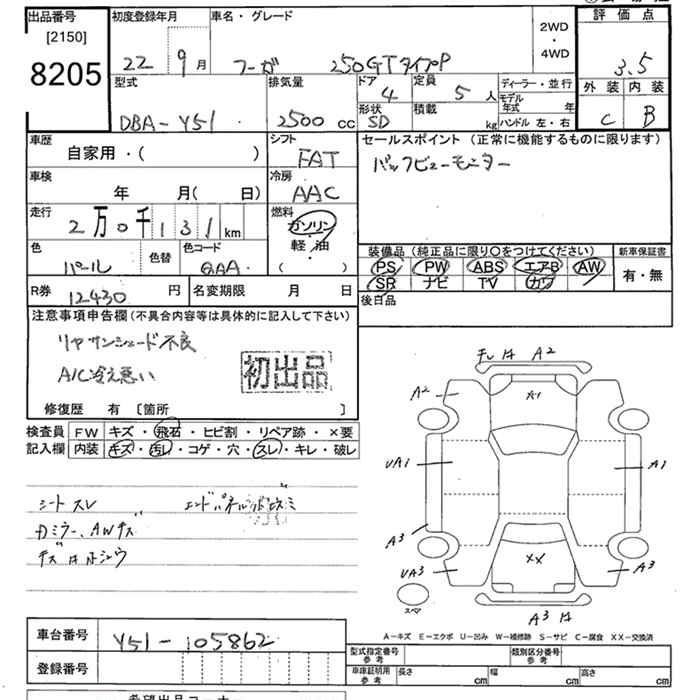 出品番号
[2150]
8205
初度登録年月
22 9月
車名・グレード
フーガ 250GTタイプP
2WD
・
4WD
評価点
3.5
外装 内装
C B
型式
DBA-Y51
排気量
2500 cc
ドア
4
定員
5 人
形状
SD
積載
kg
ディーラー・並行
モデル年式 年
ハンドル 左・右
車歴
自家用・( )
シフト
FAT
車検
年 月( 日)
冷房
AAC
走行
2万0千131 km
燃料
ガソリン
・
軽・油
・
( )
色
パール
色替
色コード
QAA
R券 12430 円
名変期限 月 日
セールスポイント(正常に機能するものに限ります)
バックビューモニター
装備品(純正品に限り○をつけてください)
新車保証書
PS PW ABS エアB AW
SR ナビ TV カワ
有・無
後日品
注意事項申告欄(不具合内容等は具体的に記入して下さい)
リヤサンシェード不良
A/C冷え悪い
初出品
修復歴 有 [箇所 ]
検査員記入欄
FW キズ・飛石・ヒビ割・リペア跡・×要
内装 キズ・汚レ・コゲ・穴・スレ・キレ・破レ
シートスレ
カミラー、AWキズ
キズ A ホシュウ
A2
A2
A1
UA1
A1
A3
UA3
XX
A3
スペア
A3
A-キズ E-エクボ U-凹み W-補修跡 S-サビ C-腐食 XX-交換済
車台番号
Y51-105862
登録番号
型式指定番号
参考
類別区分番号
参考
車庫証明用
参考
長さ cm
幅 cm
高さ cm